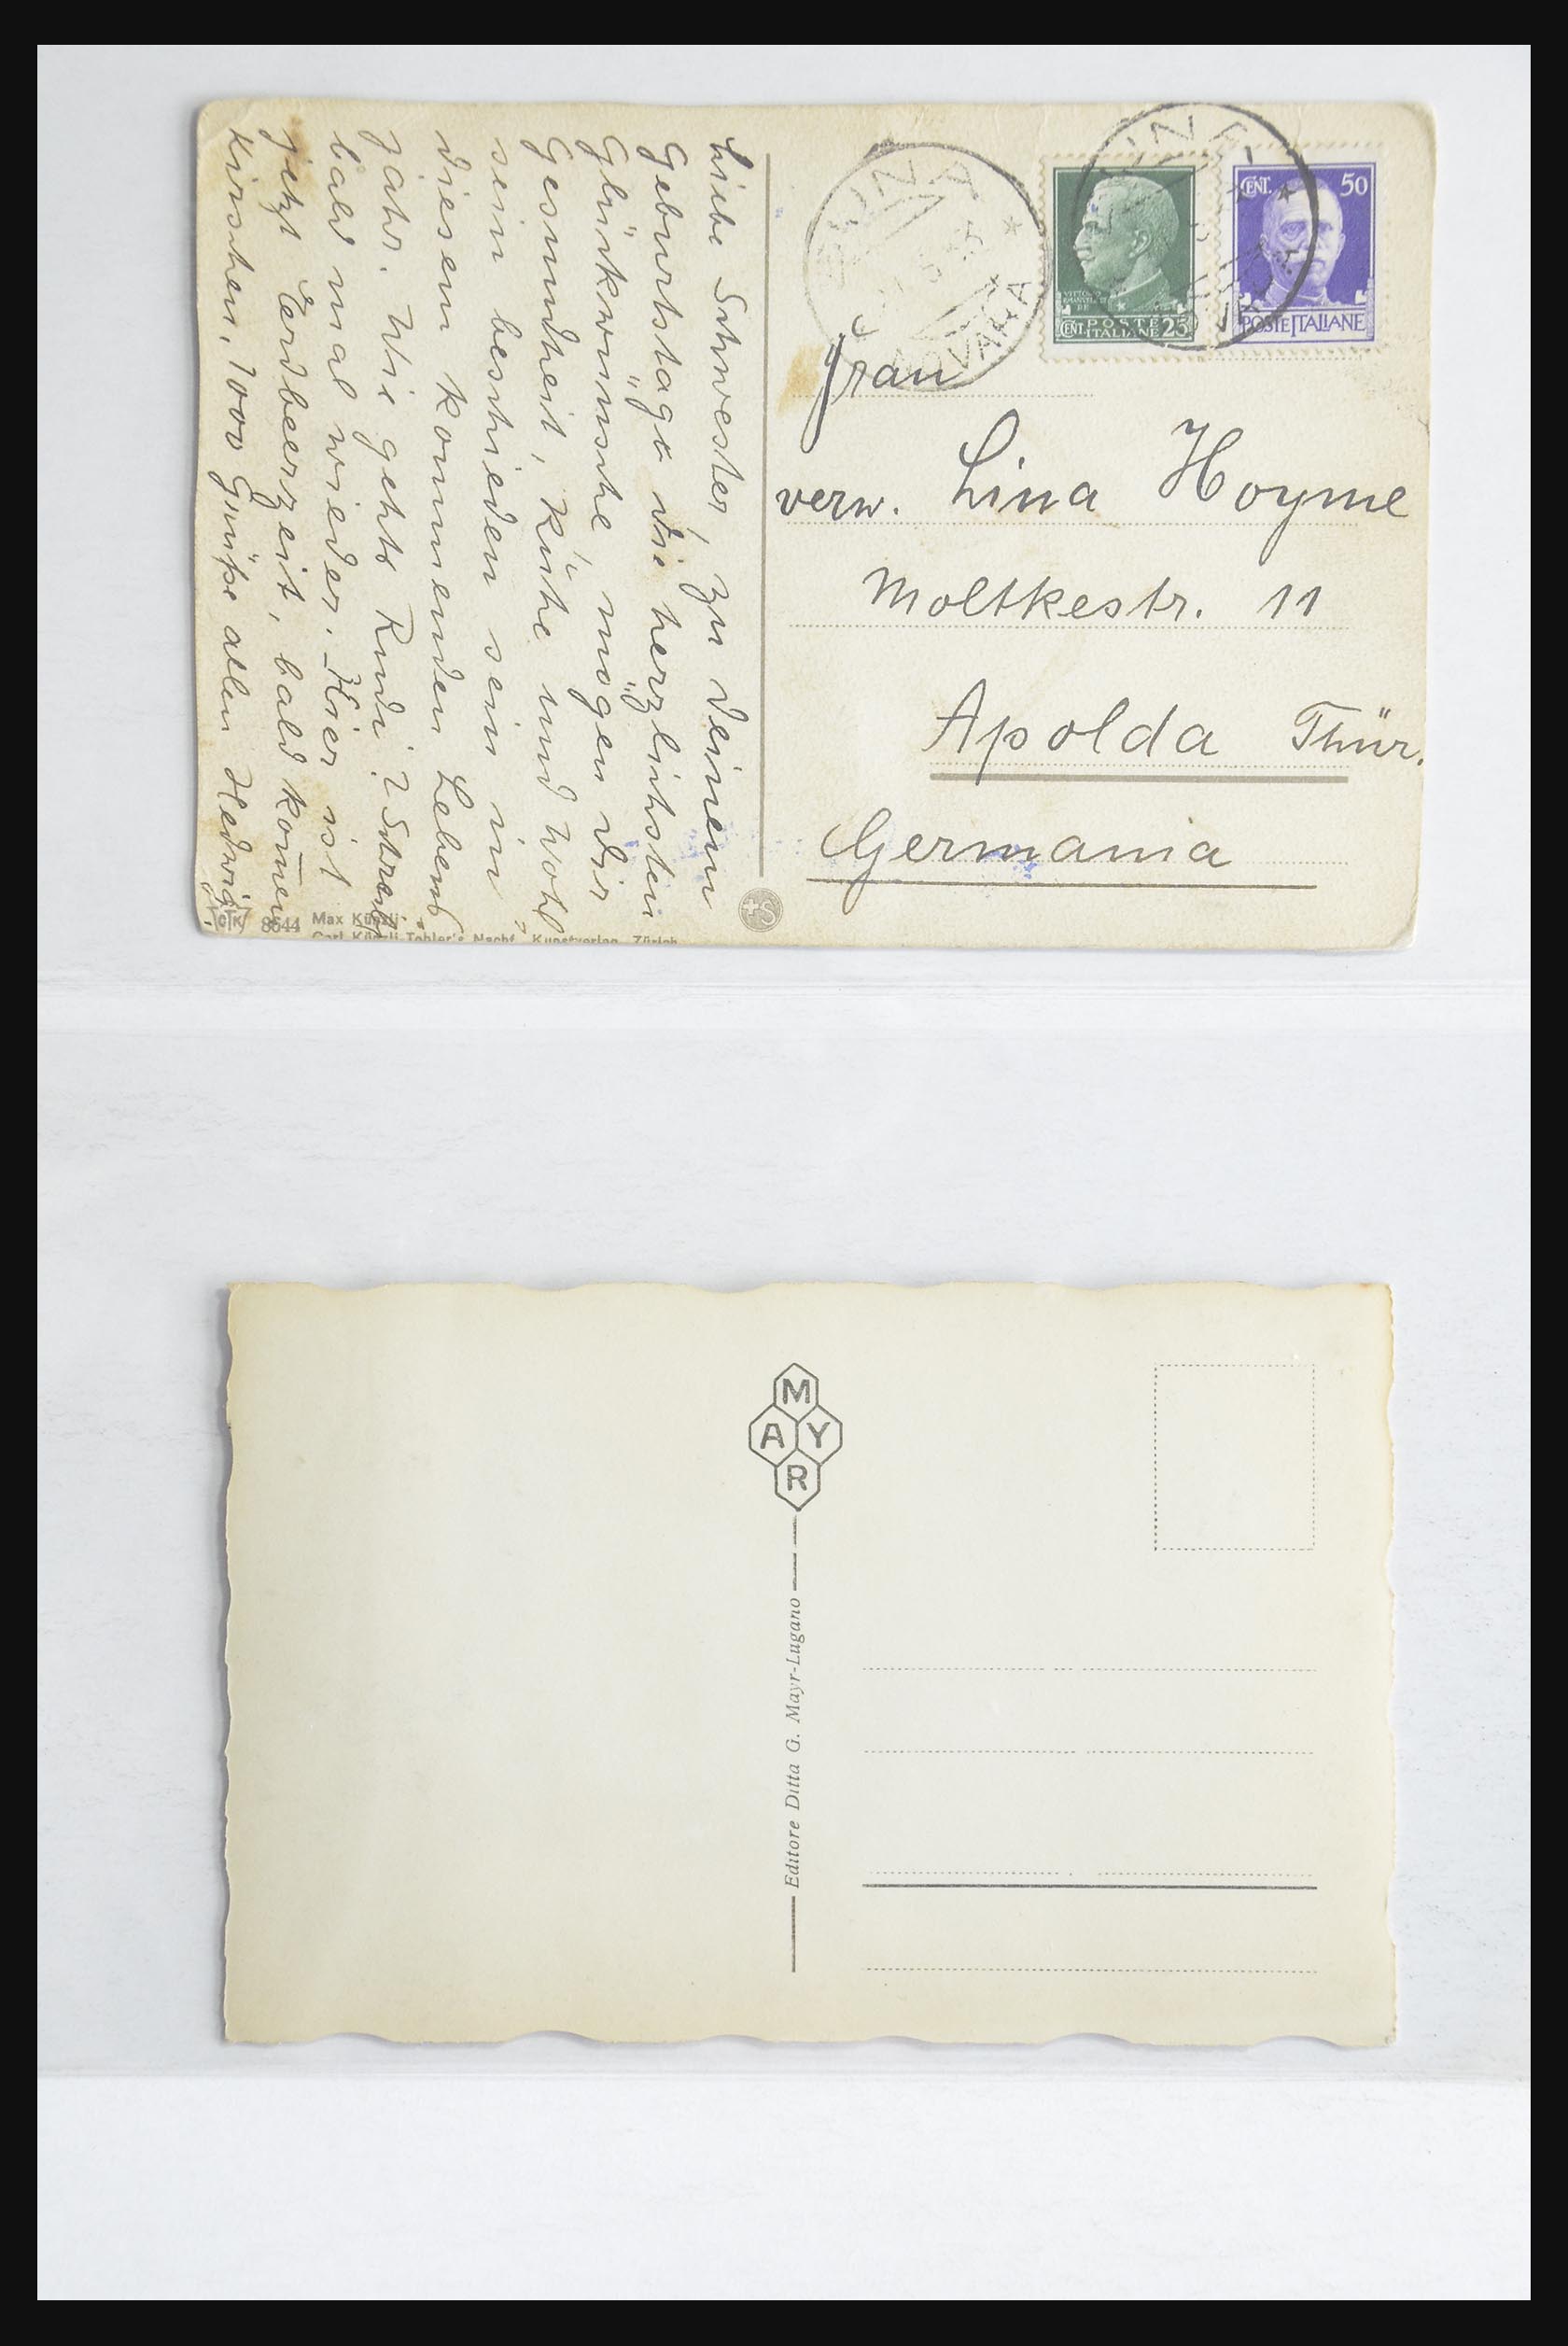 Liebe Schwester, zu Deinem
Geburtstage die herzlichsten
Glückwünsche, mögen Dir
Gesundheit, Küche und Wohl
sein beschieden sein in
diesem kommenden Lebens
jahr. Wie gehts Rudi? Schreib
bald mal wieder. Hier ist
jetzt Erdbeerzeit, bald komen
Kirschen, 1000 Grüße allen Hedwig
NOVARA
CENT. POSTE ITALIANE 25
CENT. 50
POSTE ITALIANE
Frau
verw. Lina Hoyme
Moltkestr. 11
Apolda Thür.
Germania
8544 Max Künzli
Carl Künzli-Tobler's Nachf. Kunstverlag, Zürich
M
A Y
R
Editore Ditta G. Mayr-Lugano